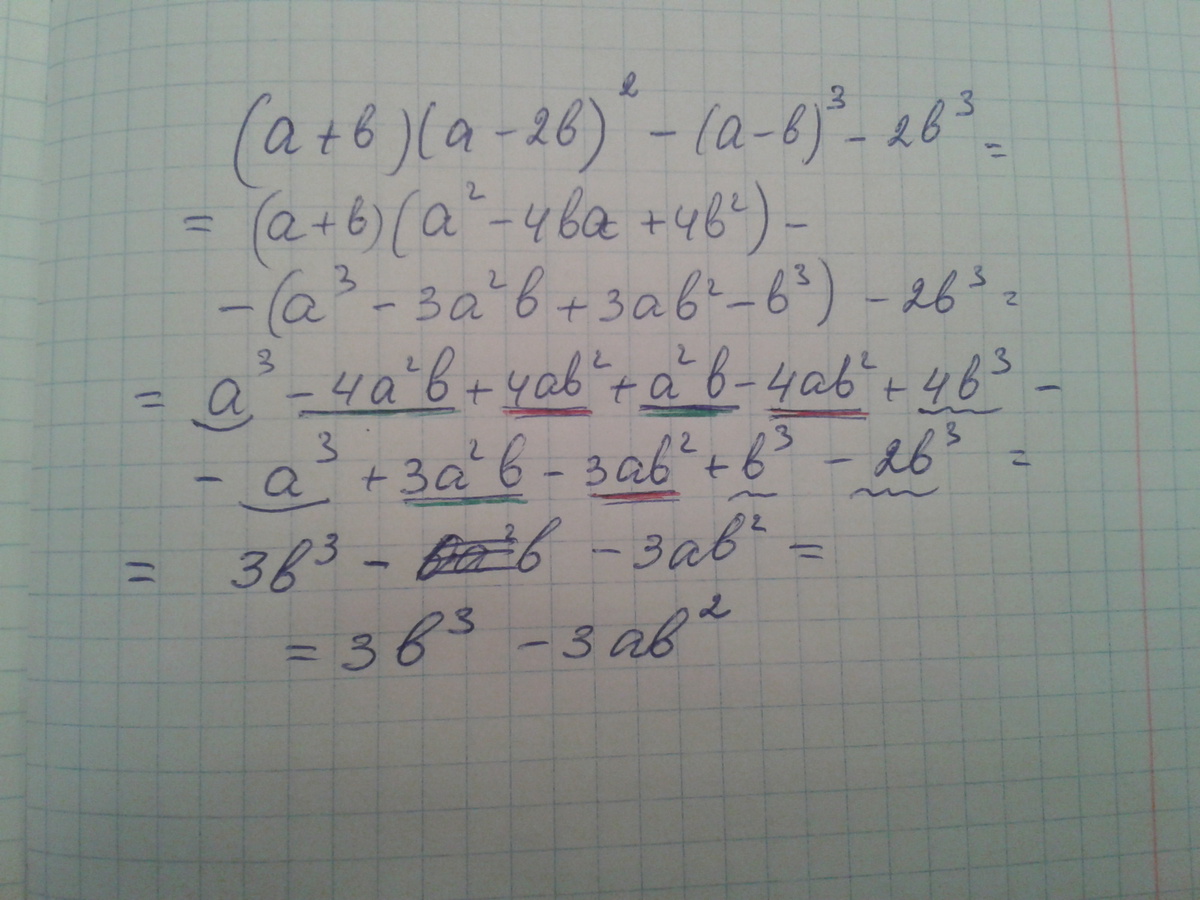 (a + b)(a - 2b)² - (a - b)³ - 2b³ =
= (a + b)(a² - 4ba + 4b²) -
- (a³ - 3a²b + 3ab² - b³) - 2b³ =
= a³ - 4a²b + 4ab² + a²b - 4ab² + 4b³ -
- a³ + 3a²b - 3ab² + b³ - 2b³ =
= 3b³ - b - 3ab² =
= 3b³ - 3ab²